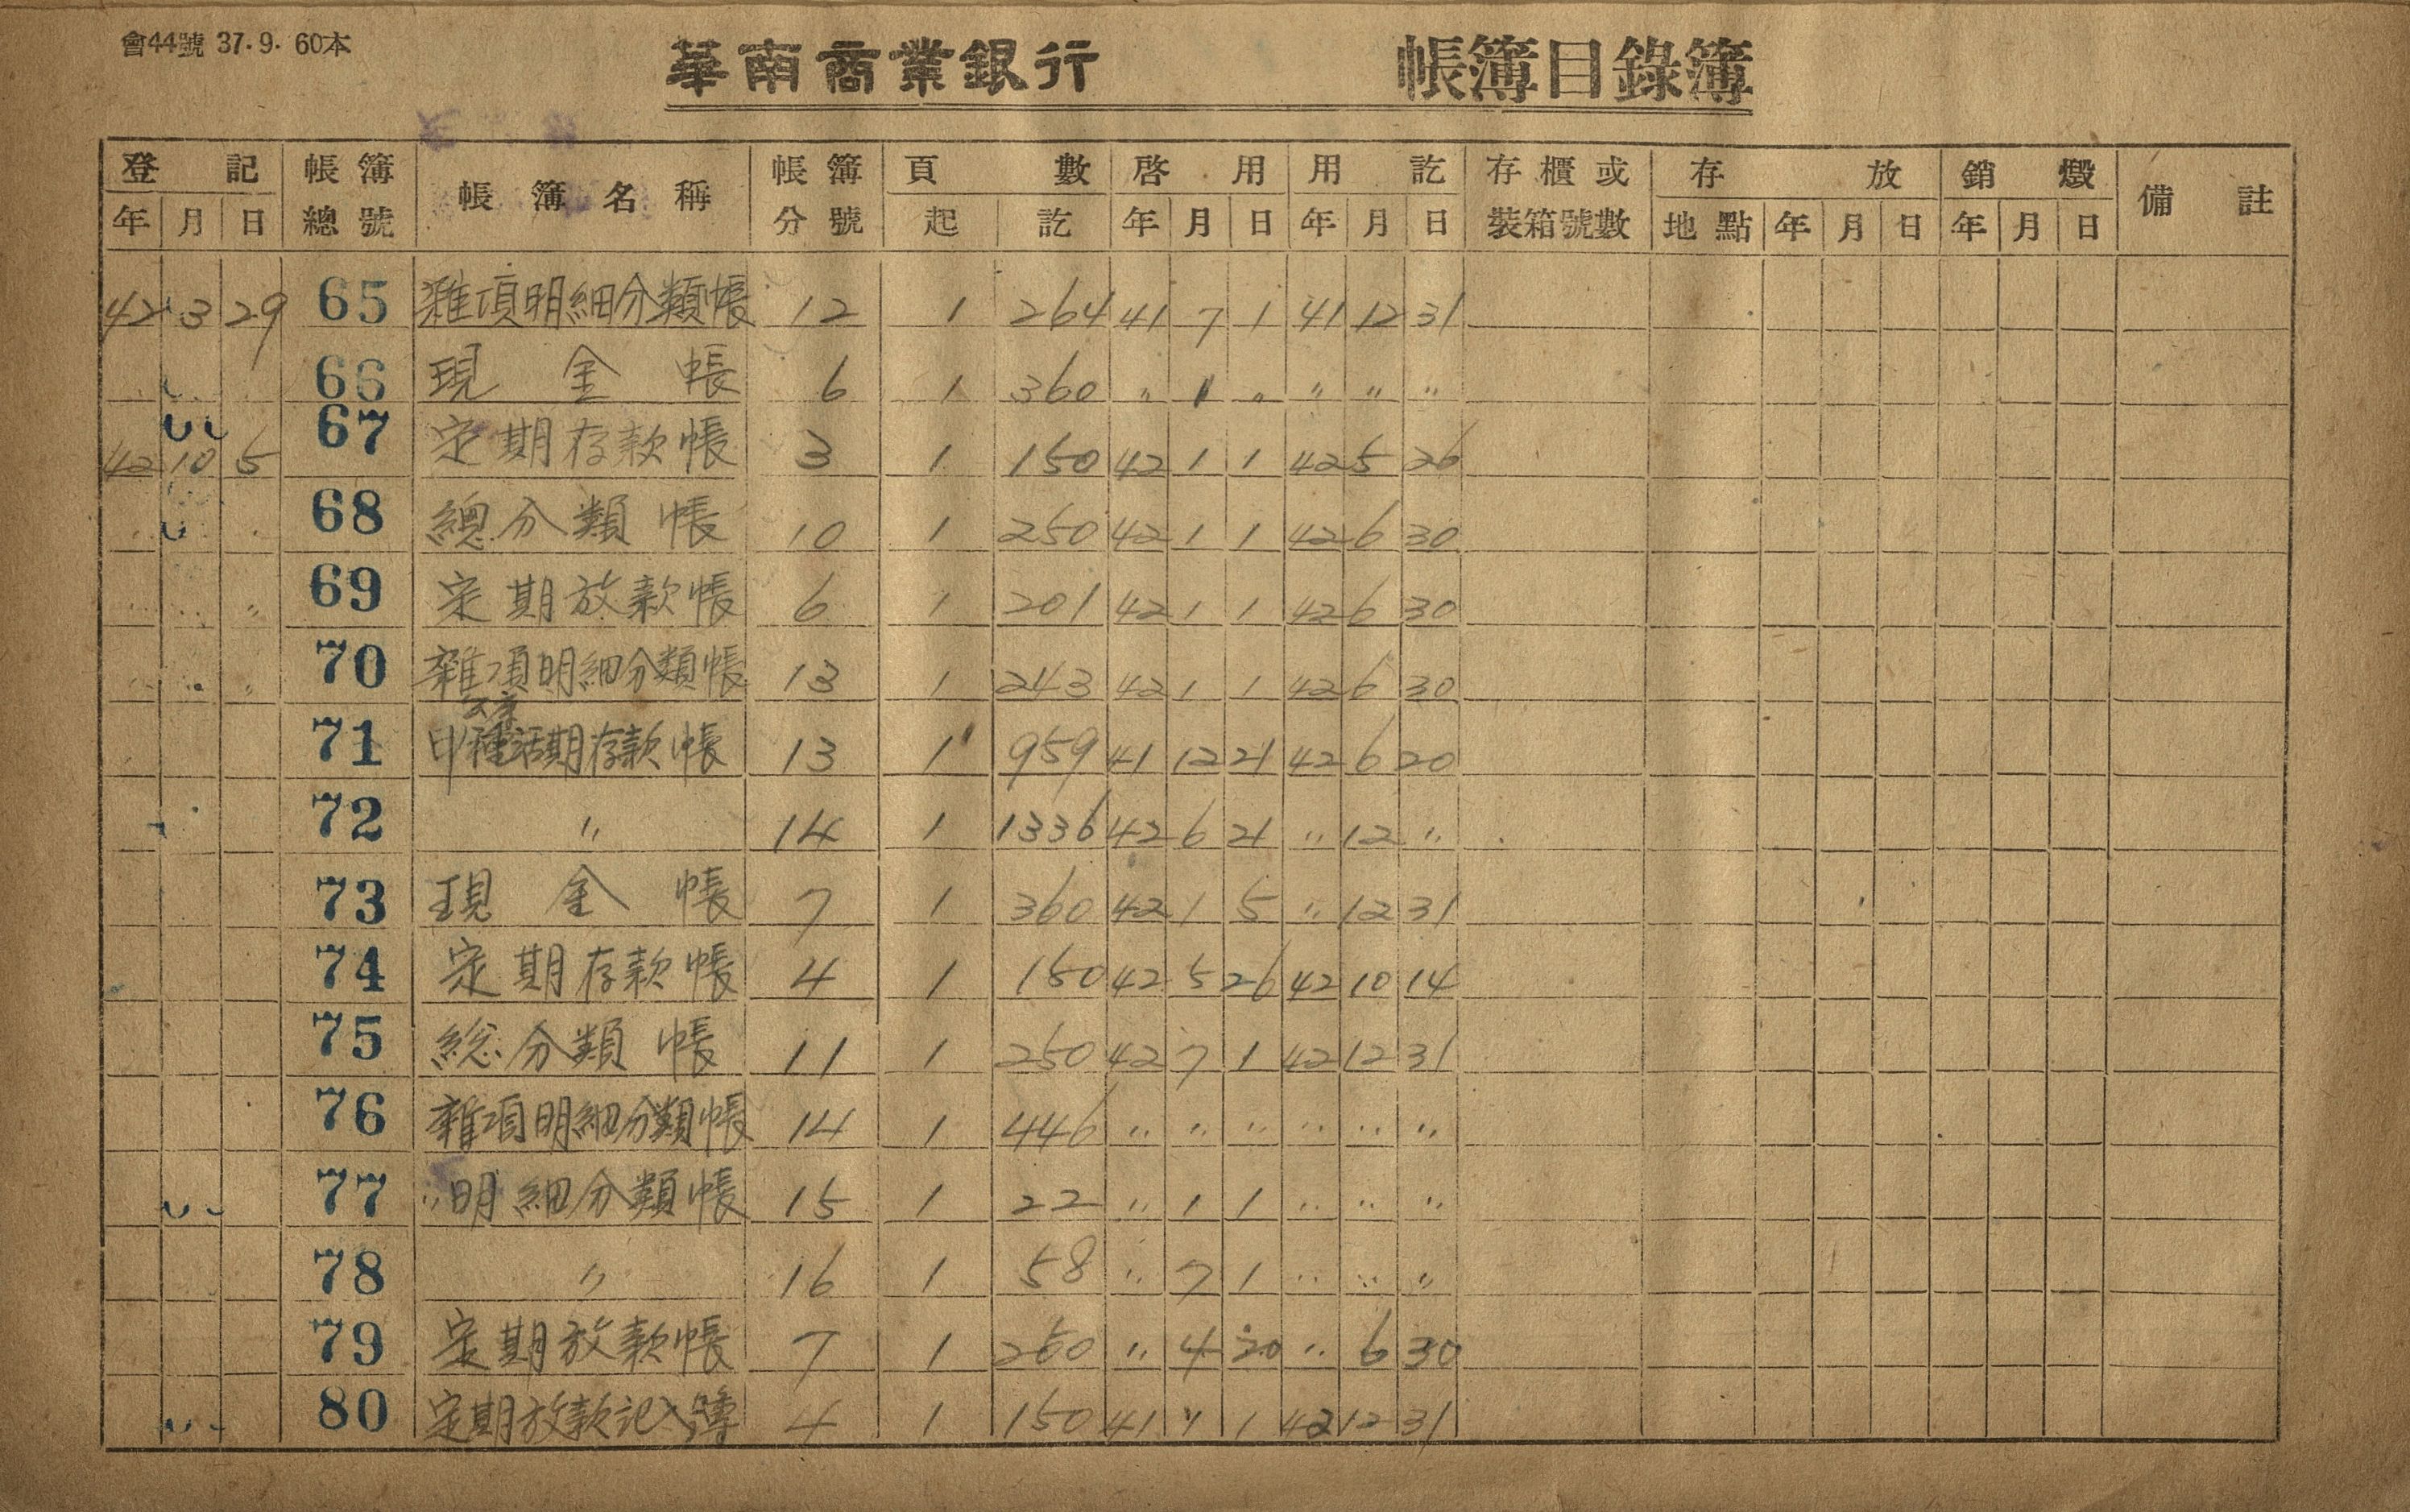 會44號 37.9. 60本
華南商業銀行 帳簿目錄簿
登記 帳簿 帳簿名稱 帳簿 頁數 啓用 用訖 存櫃或 存放 銷燬 備註
年 月 日 總號 分號 起 訖 年 月 日 年 月 日 裝箱號數 地點 年 月 日 年 月 日
42 3 29 65 雜項明細分類帳 12 1 264 41 7 1 41 12 31
66 現金帳 6 1 360 〃 1 〃 〃 〃 〃
42 10 5 67 定期存款帳 3 1 150 42 1 1 42 5 26
68 總分類帳 10 1 250 42 1 1 42 6 30
〃 69 定期放款帳 6 1 201 42 1 1 42 6 30
〃 70 雜項明細分類帳 13 1 243 42 1 1 42 6 30
71 甲種活期存款帳 13 1 959 41 12 21 42 6 20
72 〃 14 1 1336 42 6 21 〃 12 〃
73 現金帳 7 1 360 42 1 5 〃 12 31
74 定期存款帳 4 1 150 42 5 26 42 10 14
75 総分類帳 11 1 250 42 7 1 42 12 31
76 雜項明細分類帳 14 1 446 〃 〃 〃 〃 〃 〃
77 〃明細分類帳 15 1 22 〃 1 1 〃 〃 〃
78 〃 16 1 58 〃 7 1 〃 〃 〃
79 定期放款帳 7 1 250 〃 4 20 〃 6 30
80 定期放款記入簿 4 1 150 41 〃 1 42 12 31